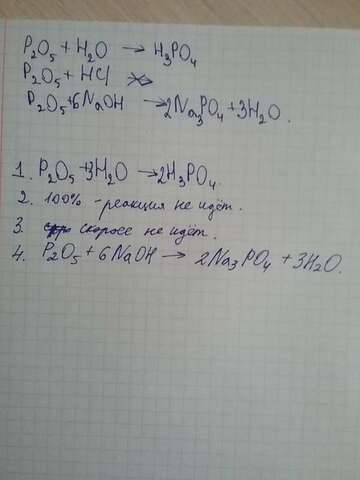 P₂O₅ + H₂O → H₃PO₄
P₂O₅ + HCl
P₂O₅ + 6NaOH → 2Na₃PO₄ + 3H₂O.
1. P₂O₅ + 3H₂O → 2H₃PO₄.
2. 100% - реакция не идёт.
3. скорее не идёт.
4. P₂O₅ + 6NaOH → 2Na₃PO₄ + 3H₂O.